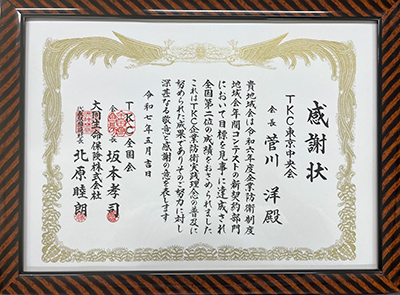 感謝状
TKC東京中央会
会長 菅川 洋殿
貴地域会は令和六年度企業防衛制度
地域会年間コンテストの新契約部門
において目標を見事に達成され
全国第二位の成績をおさめられました
これはTKC企業防衛実践理念の普及に
努められた成果でありそのご努力に対し
深甚なる敬意と感謝の意を表します
令和七年五月吉日
TKC全国会
会長 坂本孝司
大同生命保険株式会社
代表取締役社長 北原睦朗